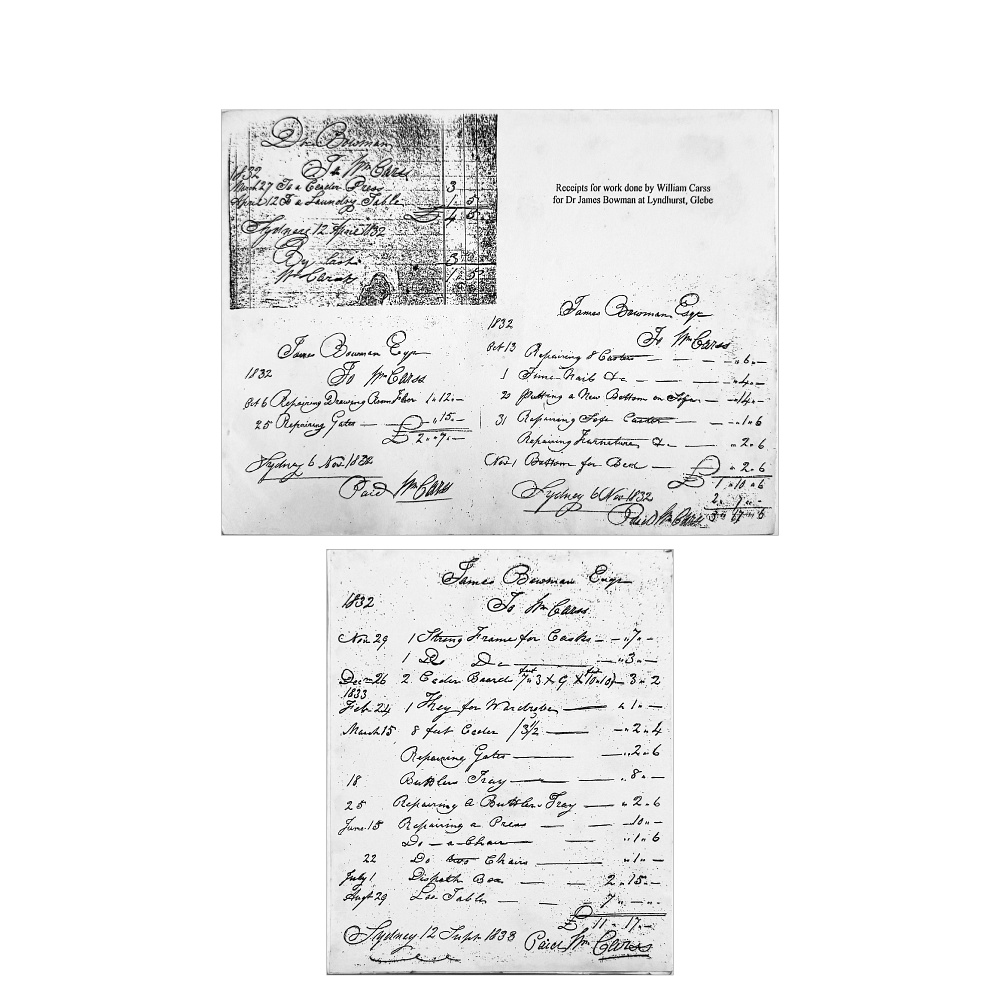 Dr Bowman
To Wm Carss
1832
March 27 To a Ceader Press 3
April 12 To a Laundry Table 1 5
£ 4 5
Sydney 12 April 1832
By Cash 3
Wm Carss 1 5
Receipts for work done by William Carss
for Dr James Bowman at Lyndhurst, Glebe
James Bowman Esqr
1832 To Wm Carss
Oct 6 Repairing Drawing Room Floor 1 " 12 " –
25 Repairing Gates — " 15 " –
£ 2 " 7 " –
Sydney 6 Nov. 1832
Paid Wm Carss
James Bowman Esqr
1832
To Wm Carss
Oct 13 Repairing 8 Castors — — — " 6 " –
1 — — — " 4 " –
20 Putting a New Bottom on Sofa — " 14 " –
31 Repairing Sofa Castor — — " 1 " 6
Repairing Furneture &c — — " 2 " 6
Nov 1 Bottom for Bed — " 2 " 6
£ 1 " 10 " 6
2 " 7 " –
Sydney 6 Nov 1832
Paid Wm Carss 3 " 17 " 6
James Bowman Esqr
1832 To Wm Carss
Nov. 29 1 Strong Frame for Casks — " 7 " –
1 Do Do — " 3 " –
Dec 26 2 Ceader Boards 7 " 3 X 9 X 10 " 10 — 3 " 2
1833
Feb. 24 1 Key for Wardrobe — " 1 " –
March 15 8 feet Ceader / 3½ — " 2 " 4
Repairing Gates — " 2 " 6
18 Buttlers Tray — " 8 " –
25 Repairing a Buttlers Tray — " 2 " 6
June 15 Repairing a Press — — 10 " –
Do – a Chair — — " 1 " 6
22 Do two Chairs — " 1 " –
July 1 Dispath Box — — 2 " 15 " –
Augt 29 Loo Table — — 7 " – " –
£ 11 " 17 " –
Sydney 12 Sept 1833 Paid Wm Carss